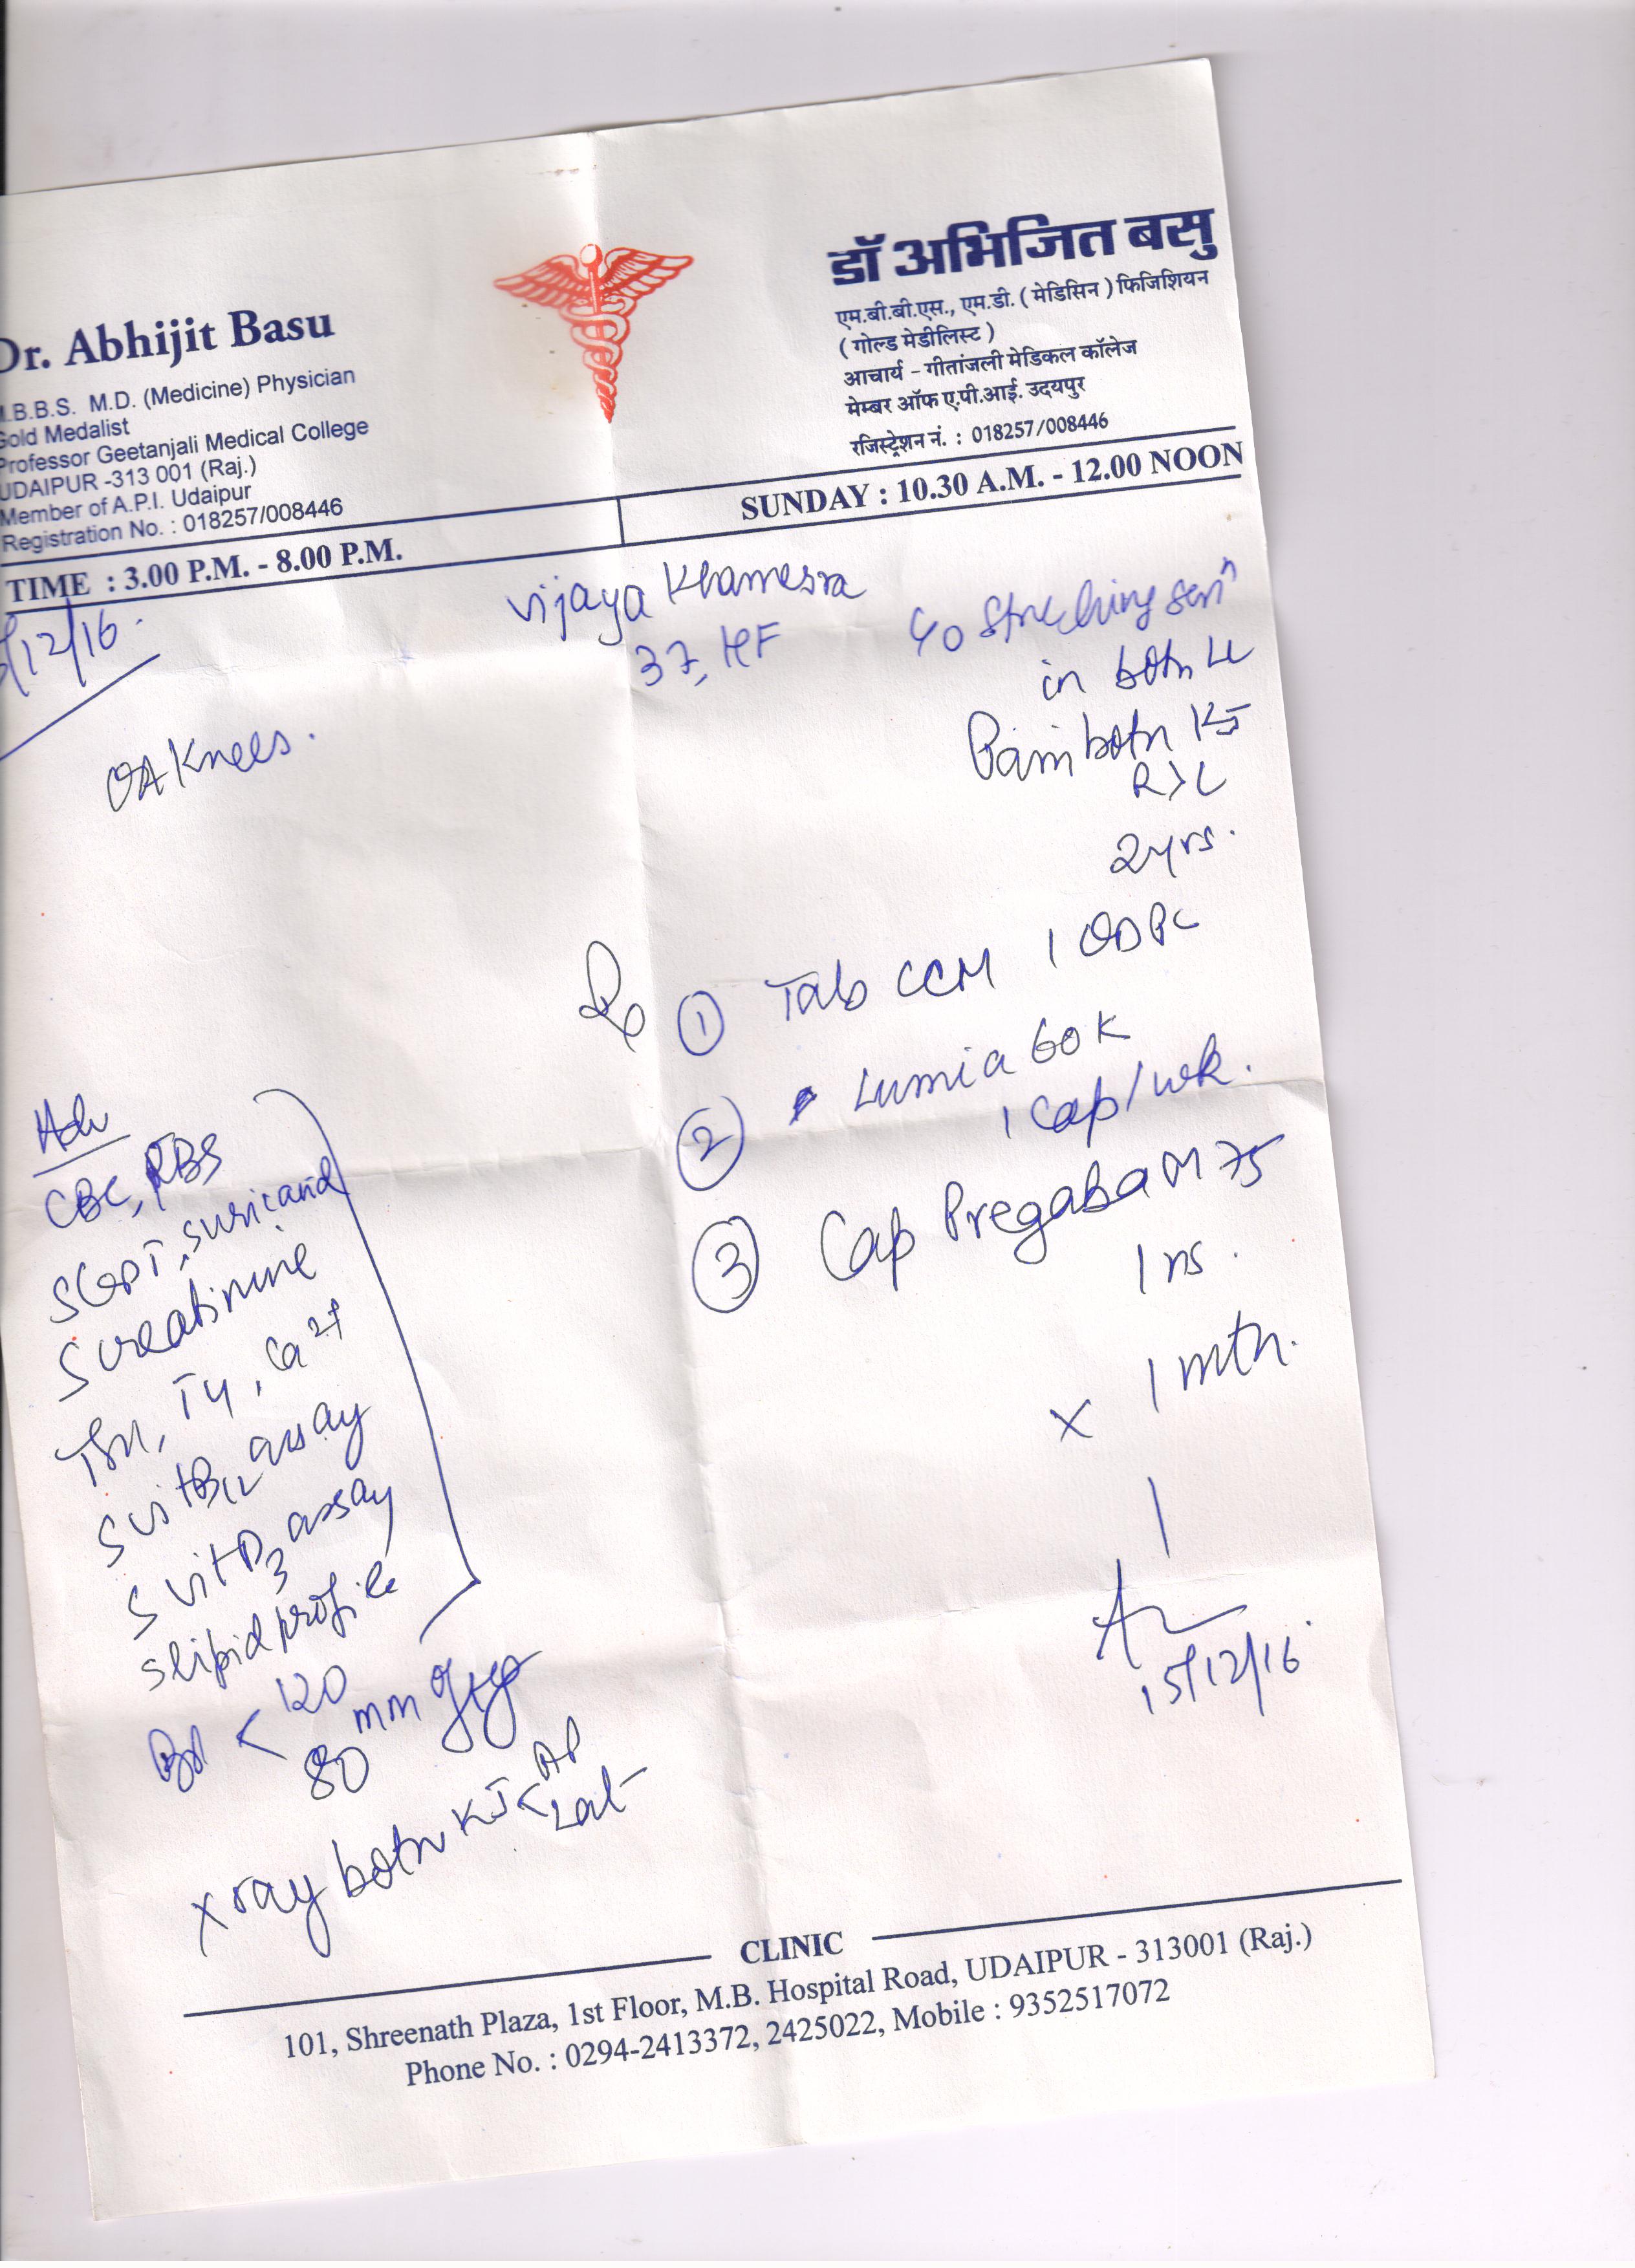 Dr. Abhijit Basu
.B.B.S. M.D. (Medicine) Physician
Gold Medalist
Professor Geetanjali Medical College
UDAIPUR -313 001 (Raj.)
Member of A.P.I. Udaipur
Registration No. : 018257/008446
डॉ अभिजित बसु
एम.बी.बी.एस., एम.डी. ( मेडिसिन ) फिजिशियन
( गोल्ड मेडीलिस्ट )
आचार्य - गीतांजली मेडिकल कॉलेज
मेम्बर ऑफ ए.पी.आई. उदयपुर
रजिस्ट्रेशन नं. : 018257/008446
TIME : 3.00 P.M. - 8.00 P.M.
SUNDAY : 10.30 A.M. - 12.00 NOON
/12/16.
Vijaya Khamesra
37, HF
c/o Streching senⁿ
in both LL
Pain both KJ
R>L
2yrs.
OA Knees.
Rx
① Tab CCM 1 OD PC
② Lumia 60K
1 cap/wk.
③ Cap Pregaba M 75
1 HS.
x 1 mth.
15/12/16.
Adv
CBC, RBS
SGPT, S uric acid
S creatinine
TSH, T4, Ca2+
S vit B12 assay
S vit D3 assay
S lipid profile
BP < 120 mm Hg
80
X ray both KJ < AP
Lat
CLINIC
101, Shreenath Plaza, 1st Floor, M.B. Hospital Road, UDAIPUR - 313001 (Raj.)
Phone No. : 0294-2413372, 2425022, Mobile : 9352517072